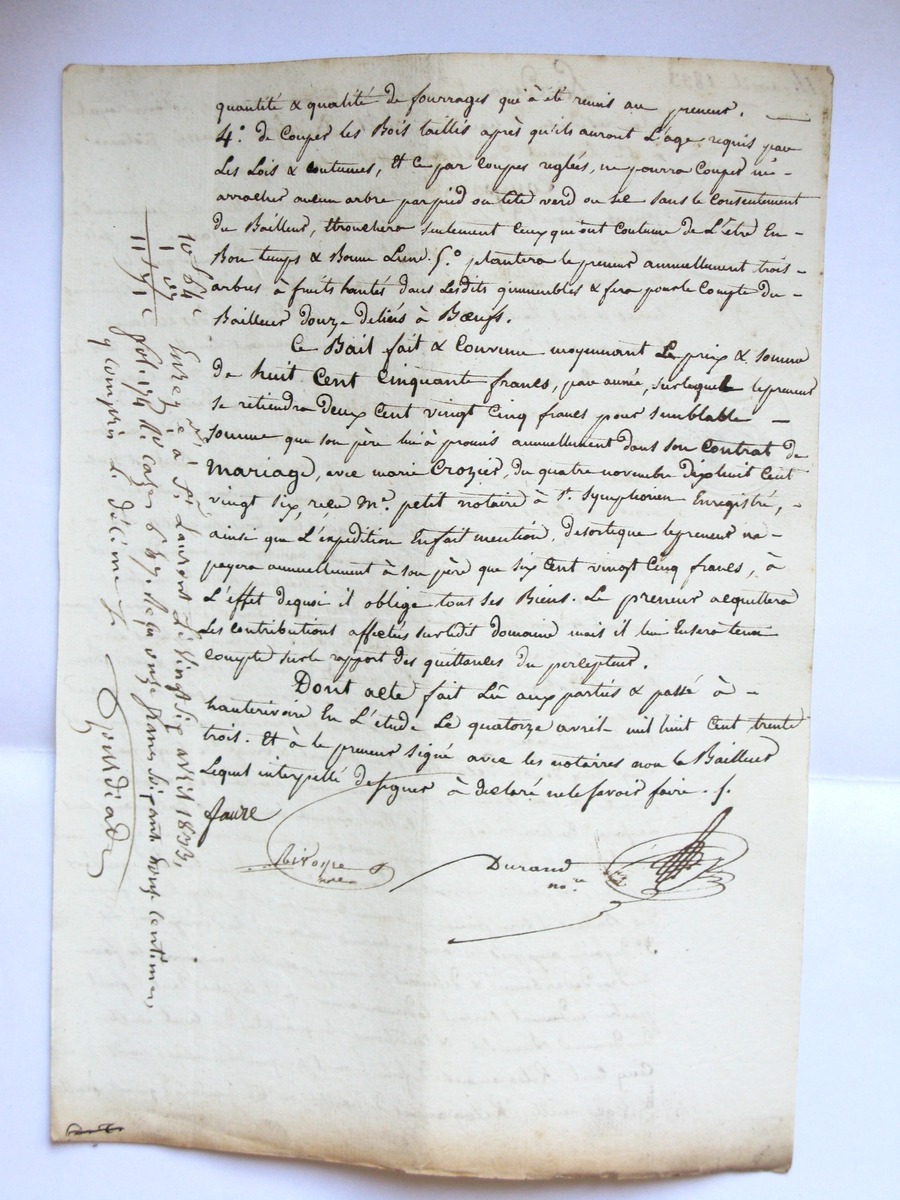 quantité & qualité de fourrages qui à été remis au preneur.
4.° de Couper les Bois taillis après qu'ils auront L'age requis par
Les Lois & coutumes, Et ce par coupes reglées, ne pourra Couper ni
arracher aucun arbre par pied ou tête verd ou sec sans le Consentement
du Bailleur, Etronchera seulement Ceux qui ont Coutume de L'être En
Bon temps & Bonne Lune. 5.° plantera le preneur annuellement trois
arbres à fruits hantés dans Lesdits immeubles & fera pour le Compte du
Bailleur douze deliés à Bœufs.
Ce Bail fait & Convenu moyennant Le prix & somme
De huit Cent Cinquante francs, par année, sur lequel le preneur
se retiendra Deux Cent vingt Cinq francs pour semblable
somme que son père lui à promis annuellement dans son Contrat de
Mariage, avec marie Crozier, du quatre novembre dix huit Cent
vingt six, reçu M.e petit notaire à St. Symphorien Enregistré,
ainsi que L'expédition En fait mention, desorte que le preneur ne
payera annuellement à son père que six Cent vingt Cinq francs, à
L'effet de quoi il oblige tous ses Biens. Le preneur acquittera
Les Contributions affectées sur ledit domaine mais il lui En sera tenu
compte sur le rapport des quittances du percepteur.
Dont acte fait Lû aux parties & passé à
hauterivoire En L'étude Le quatorze avril mil huit Cent trente
trois. Et à le preneur signé avec les notaires non le Bailleur
Lequel interpellé de signer à déclaré ne le savoir faire.
faure
Durand
no.re
10 f 64 c
1 07
11 f 71 c
Enreg.é à St. Laurent Le vingt six avril 1833,
fol. 174 R.o cazes 6 & 7. Reçu onze francs soixante onze centimes,
y compris le décime